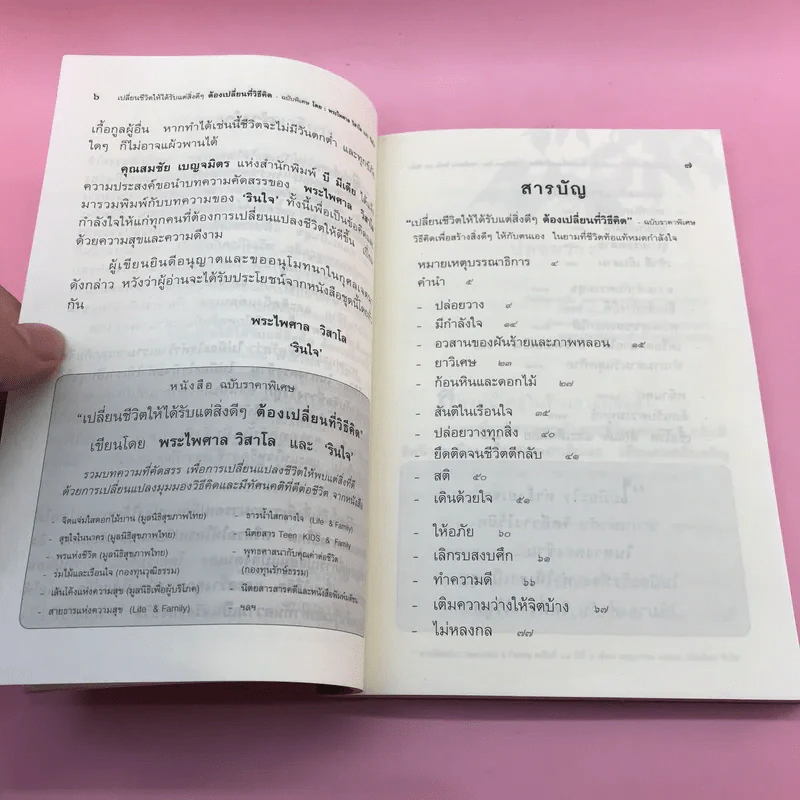 ๖ เปลี่ยนชีวิตให้ได้รับแต่สิ่งดีๆ ต้องเปลี่ยนที่วิธีคิด - ฉบับพิเศษ โดย : พระไพศาล
เกื้อกูลผู้อื่น หากทำได้เช่นนี้ชีวิตจะไม่มีวันตกต่ำ และทุกข์
ใดๆ ก็ไม่อาจแผ้วพานได้
คุณสมชัย เบญจมิตร แห่งสำนักพิมพ์ บี มีเดีย
ความประสงค์ขอนำบทความคัดสรรของ พระไพศาล
มารวมพิมพ์กับบทความของ ‘รินใจ’ ทั้งนี้เพื่อเป็นข้อคิด
กำลังใจให้แก่ทุกคนที่ต้องการเปลี่ยนแปลงชีวิตให้ดีขึ้น
ด้วยความสุขและความดีงาม
ผู้เขียนยินดีอนุญาตและขออนุโมทนาในกุศล
ดังกล่าว หวังว่าผู้อ่านจะได้รับประโยชน์จากหนังสือชุดนี้
กัน
พระไพศาล วิสาโล
‘รินใจ’
หนังสือ ฉบับราคาพิเศษ
“เปลี่ยนชีวิตให้ได้รับแต่สิ่งดีๆ ต้องเปลี่ยนที่วิธีคิด”
เขียนโดย พระไพศาล วิสาโล และ ‘รินใจ’
รวมบทความที่คัดสรร เพื่อการเปลี่ยนแปลงชีวิตให้พบแต่สิ่งที่ดี
ด้วยการเปลี่ยนแปลงมุมมองวิธีคิดและมีทัศนคติที่ดีต่อชีวิต จากหนังสือ
- จิตแจ่มใสดอกไม้บาน (มูลนิธิสุขภาพไทย)
- สุขใจในนาคร (มูลนิธิสุขภาพไทย)
- พรแห่งชีวิต (มูลนิธิสุขภาพไทย)
- ร่มไม้และเรือนใจ (กองทุนวุฒิธรรม)
- เส้นโค้งแห่งความสุข (มูลนิธิเพื่อผู้บริโภค)
- สายธารแห่งความสุข (Life & Family)
- ธารน้ำใสกลางใจ (Life & Family)
- นิตยสาร Teen KIDS & Family
- พุทธศาสนากับคุณค่าต่อชีวิต
(กองทุนรักษ์ธรรม)
- นิตยสารสารคดีและหนังสือพิมพ์มติชน
- ฯลฯ
๗
สารบัญ
“เปลี่ยนชีวิตให้ได้รับแต่สิ่งดีๆ ต้องเปลี่ยนที่วิธีคิด” - ฉบับราคาพิเศษ
วิธีคิดเพื่อสร้างสิ่งดีๆ ให้กับตนเอง ในยามที่ชีวิตท้อแท้หมดกำลังใจ
หมายเหตุบรรณาธิการ ๔
คำนำ ๕
- ปล่อยวาง ๙
- มีกำลังใจ ๑๔
- อวสานของฝันร้ายและภาพหลอน ๑๕
- ยาวิเศษ ๒๓
- ก้อนหินและดอกไม้ ๒๗
- สันติในเรือนใจ ๓๕
- ปล่อยวางทุกสิ่ง ๔๐
- ยึดติดจนชีวิตตีกลับ ๔๑
- สติ ๕๐
- เดินด้วยใจ ๕๑
- ให้อภัย ๖๐
- เลิกรบสงบศึก ๖๑
- ทำความดี ๖๖
- เติมความว่างให้จิตบ้าง ๖๗
- ไม่หลงกล ๗๗